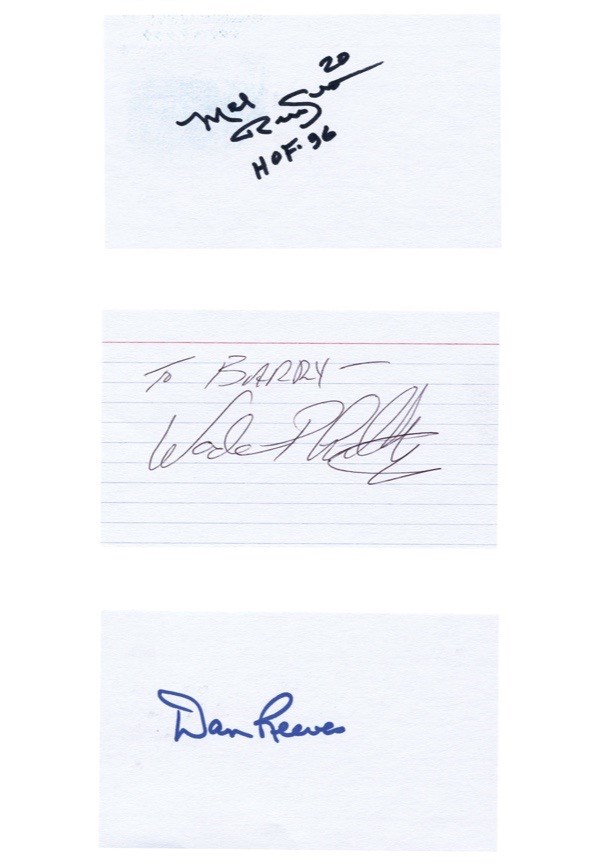 Mel 20
HOF. 96
To BARRY —
Wade
Dan Reeves